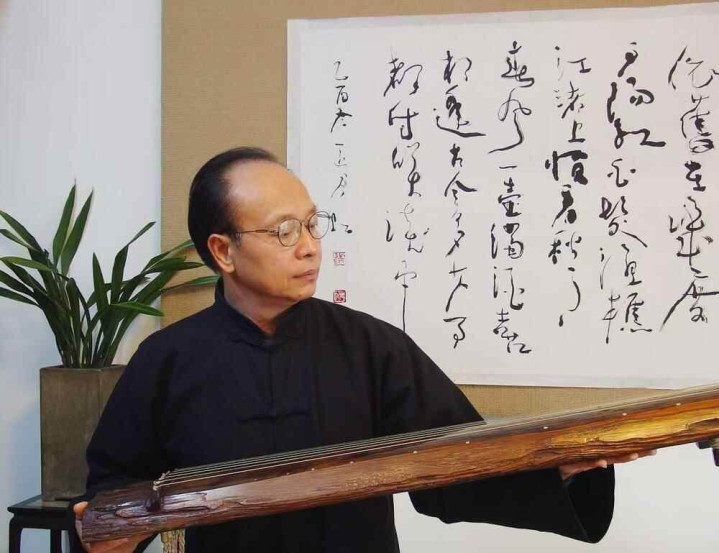 依舊在幾度
夕陽紅白髮漁樵
江渚上慣看秋月
春風一壺濁酒喜
相逢古今多少事
都付笑談中
乙酉冬